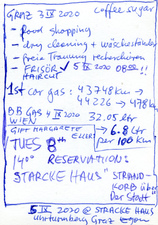 GRAZ 3 IX 2020 coffee sugar
- food shopping
- day cleaning + wäscheständer
- freia Training recherchieren
- FRISÖR ✓ 5 IX 2020 08
HAIRCUT
1st car gas: 43748 km →
44226 → 478 km
BB GAS 4 IX 2020 32.05 ltr
WIEN
GIFT MARGARETE → 6.8 ltr
TUES 8th per 100 km
14°° RESERVATION:
STARCKE HAUS" STRAND-
KORB über
Der Stadt"
5 IX 2020 @ STARCKE HAUS
Graz